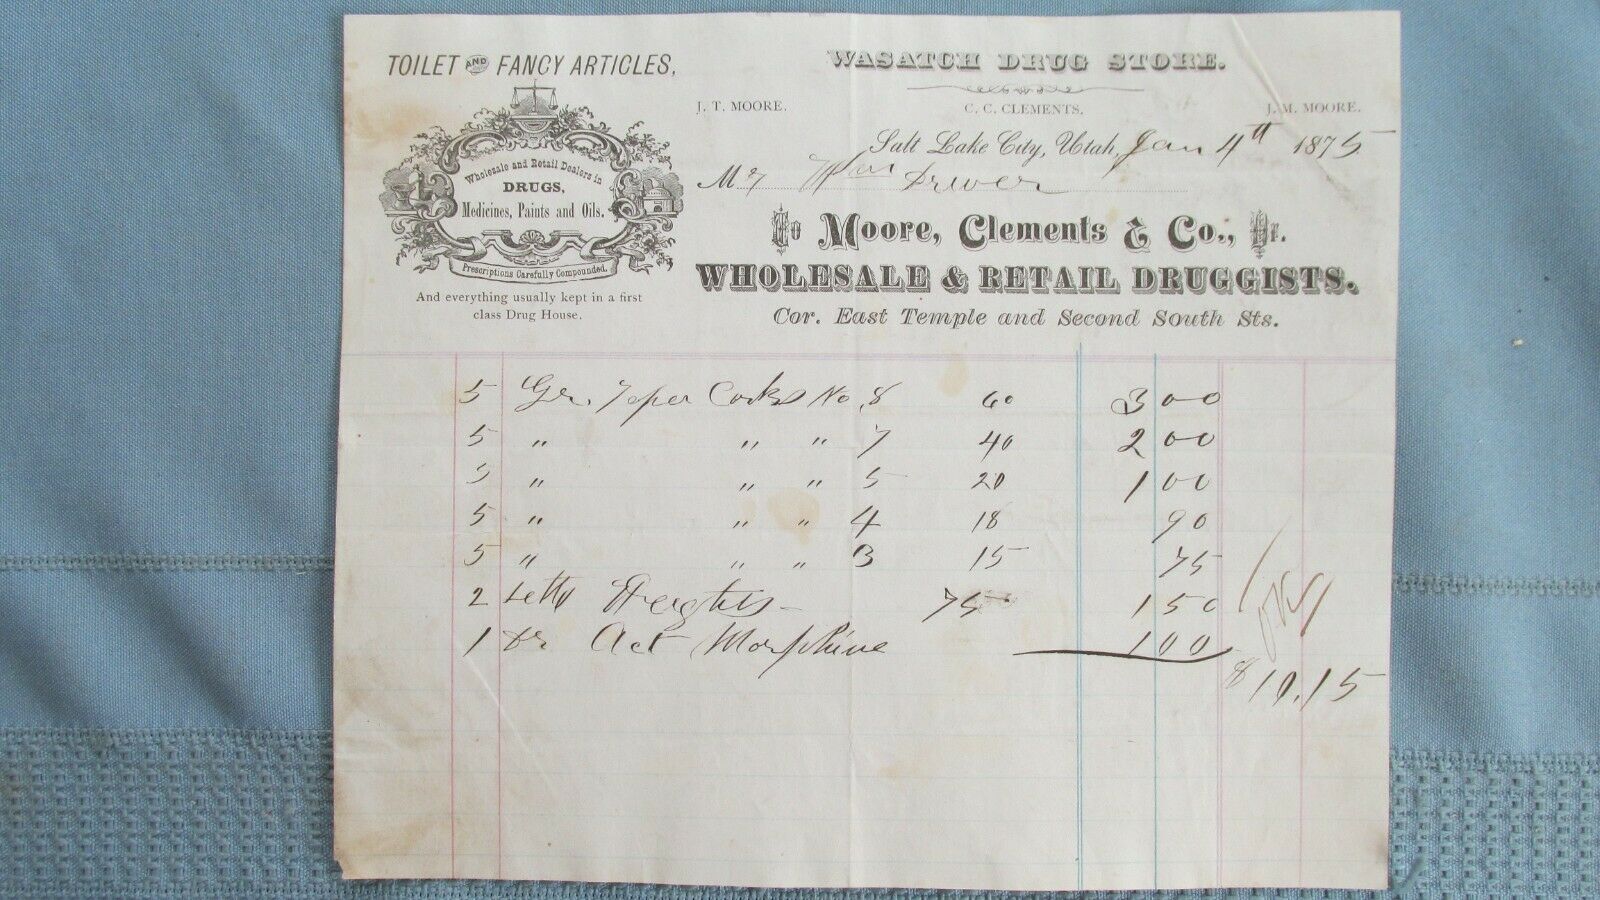 TOILET AND FANCY ARTICLES,
Wholesale and Retail Dealers in
DRUGS,
Medicines, Paints and Oils.
Prescriptions Carefully Compounded.
And everything usually kept in a first
class Drug House.
WASATCH DRUG STORE.
J. T. MOORE. C. C. CLEMENTS. J. M. MOORE.
Salt Lake City, Utah, Jan 4th 1875
Mr Wm Driver
To Moore, Clements & Co., Dr.
WHOLESALE & RETAIL DRUGGISTS.
Cor. East Temple and Second South Sts.
5 Gr. Taper Corks No 8 60 3 00
5 " " " 7 40 2 00
5 " " " 5 20 1 00
5 " " " 4 18 90
5 " " " 3 15 75
2 75 1 50
1 Dr Act Morphine 1 00
$10.15